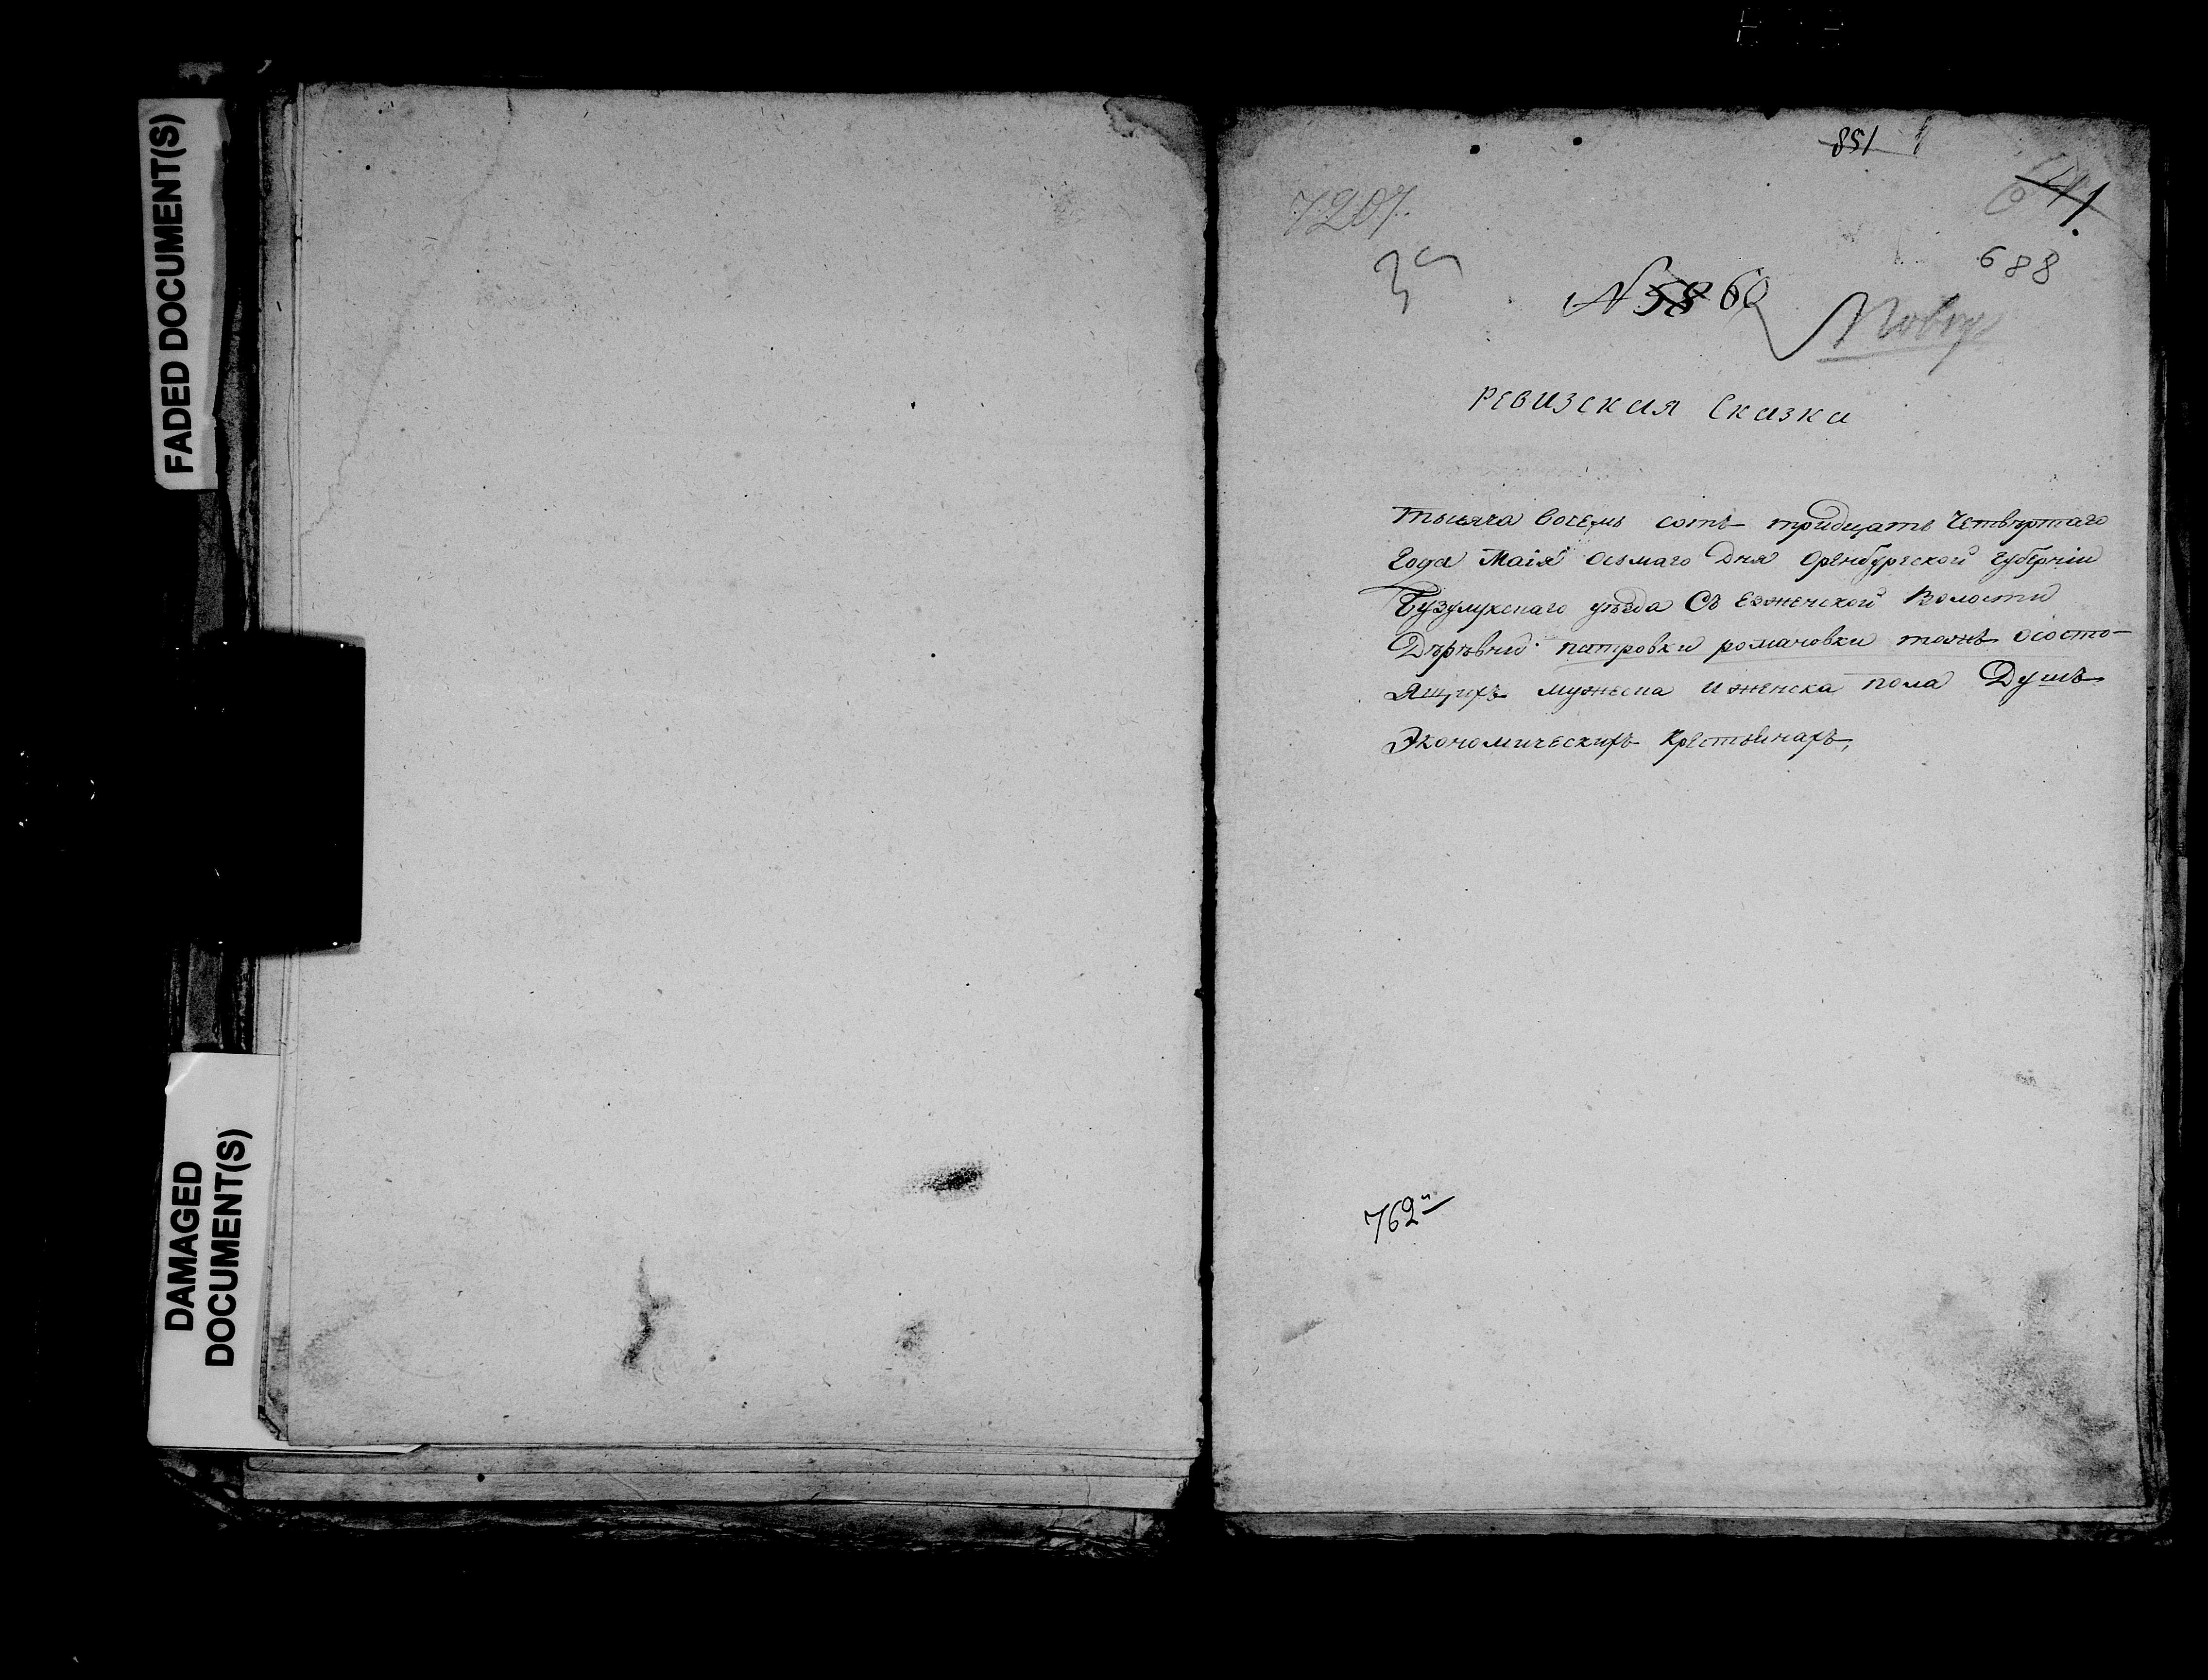 FADED DOCUMENT(S)
DAMAGED
DOCUMENT(S)
851
7207.
641.
688
N 58 60
Ревизская Сказка
тысяча восемь сотъ тридцать Четвертаго
Года Маія осьмаго Дня Оренбургской Губерніи
Бузулукскаго уезда Съ Езженской Волости
Деревни петровки романовки тожъ ососто-
Ящихъ мужеска и женска пола Душъ
Экономическихъ Крестьянахъ,
762